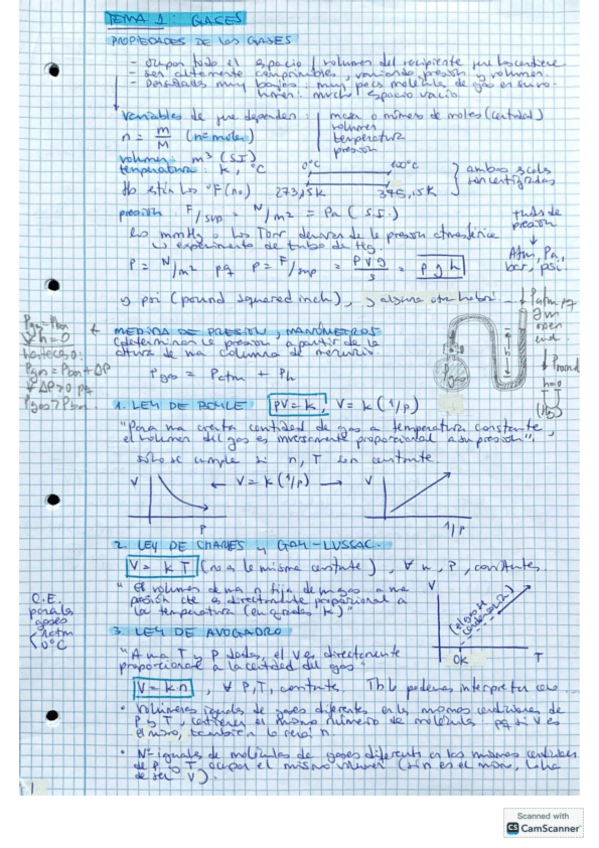 TEMA 1: GASES
PROPIEDADES DE LOS GASES
- ocupar todo el espacio / volumen del recipiente que los contiene
- ser altamente comprimibles, variando presión y volumen.
- Densidades muy bajas: muy pocas moléculas de gas en su vo-
lumen: mucho espacio vacío.
Variables de que dependen: masa o número de moles (cantidad)
volumen
temperatura
presión
n = m/M (n = moles)
volumen: m³ (S.I.)
temperatura: K, °C
0°C 100°C
273,15K 373,15K
ambas scalas
son centígradas
tb están los °F (no)
presión: F/sup = N/m² = Pa (S.I.)
los mmHg o los Torr derivan de la presión atmosférica
↳ experimento de tubo de Hg.
P = N/m² pq P = F/sup = PVg/S = Pgh
Atm, Pa,
bar, psi.
y psi (pound squared inch), y alguna otra habrá
MEDIDA DE PRESIÓN, MANÓMETROS
(determinar la presión a partir de la
altura de una columna de mercurio
Pgas = Patm + Ph
open
end.
h=0
(Hg)
h=0
Pgas
1. LEY DE BOYLE PV = k, V = k (1/P)
"Para una cierta cantidad de gas a temperatura constante,
el volumen del gas es inversamente proporcional a su presión".
sólo se cumple si n, T son constante.
V ← V = k (1/P) → V
P 1/P
2. LEY DE CHARLES y GAY-LUSSAC.
V = k T (no es la misma constante), ∀ n, P, constantes.
"El volumen de una n fija de un gas a una
presión cte es directamente proporcional a
la temperatura (en grados K)"
V
0K T
C.E.
para los
gases
1 atm
0°C
3. LEY DE AVOGADRO
"A una T y P dadas, el V es directamente
proporcional a la cantidad del gas"
V = k n, ∀ P, T, constante. Tb le podemos interpretar como...
• Volúmenes iguales de gases diferentes en las mismas condiciones de
P y T, contienen el mismo número de moléculas pq si V es
el mismo, también lo será n.
• Nº iguales de moléculas de gases diferentes en las mismas condiciones
de P y T ocupan el mismo volumen (si n es el mismo, ha
de ser V).
1
Scanned with
CS CamScanner